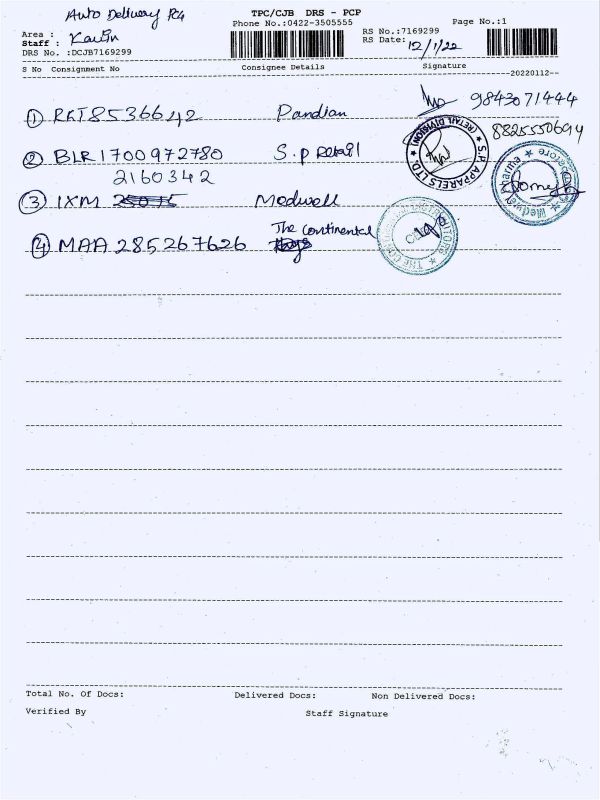 Auto Delivery PG
TPC/CJB DRS - PCP
Phone No.:0422-3505555
Page No.:1
Area :
Staff :
DRS No. :DCJB7169299
RS No.:7169299
RS Date: 12/1/22
S No Consignment No Consignee Details Signature
--20220112--
① RKT8536642 Pandian 9843071444
② BLR1700972780 S.P Retail 8825550694
S.P. APPARELS LTD (RETAIL DIVISION)
2160342
③ IXM Medwell
Medwell Coimbatore
④ MAA 285267626 The Continental
THE CONTINENTAL
Total No. Of Docs: Delivered Docs: Non Delivered Docs:
Verified By Staff Signature